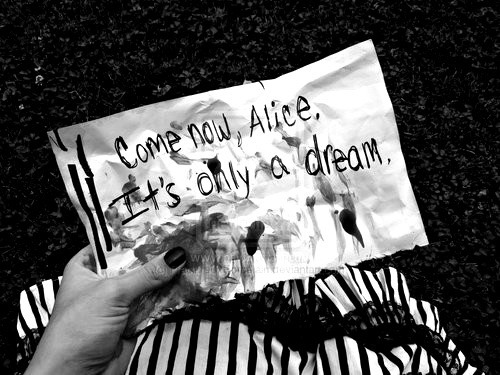 Come now, Alice.
It's only a dream.